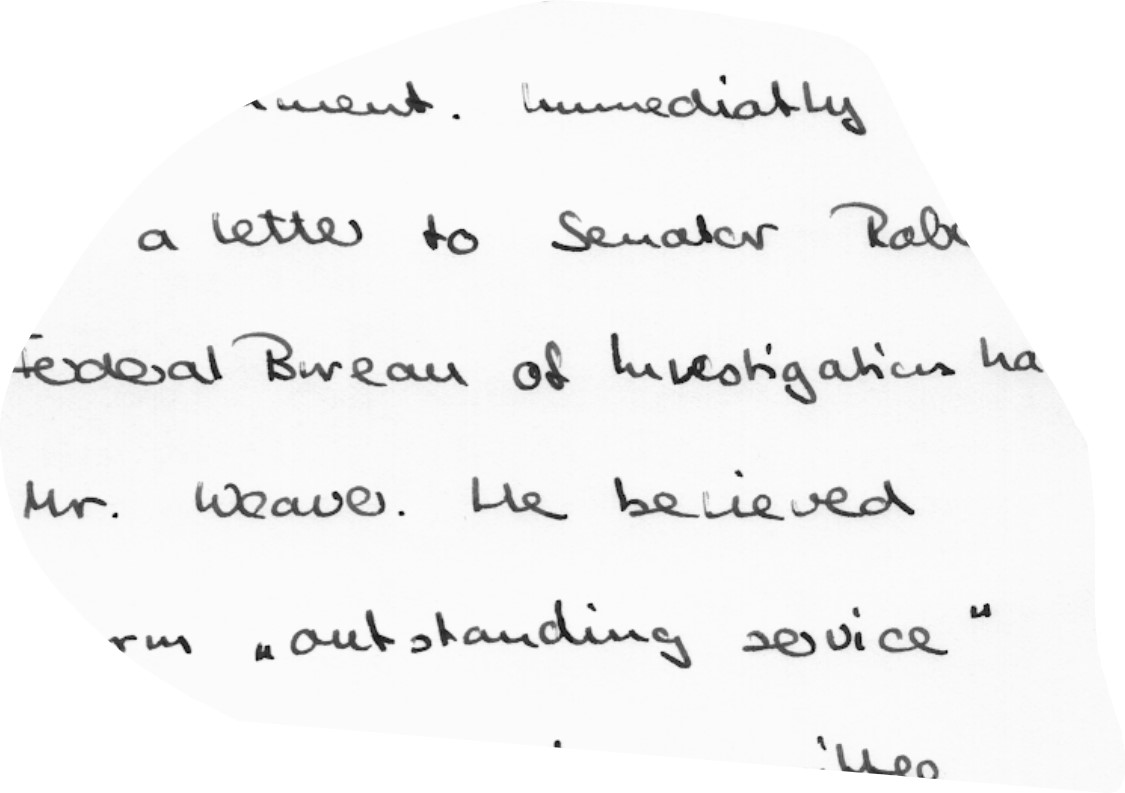 ment. Immediatly
a letter to Senator Rob
Federal Bureau of Investigation ha
Mr. Weaver. He believed
rm „outstanding service"